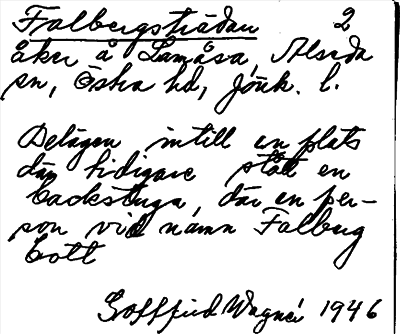 Falbergsträdan 2
åker å Lamåsa, Alseda
sn, Östra hd, Jönk. l.
Belägen intill en plats
där tidigare stått en
backstuga, där en per-
son vid namn Falberg
bott
Gottfrid Wagnér 1946